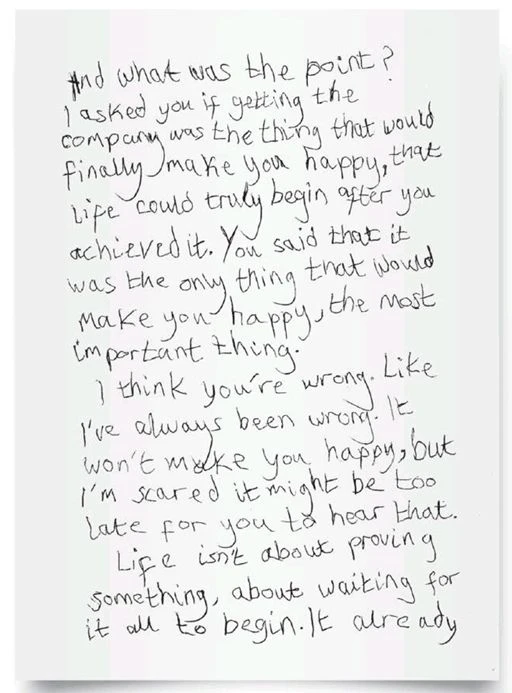 And what was the point?
I asked you if getting the
company was the thing that would
finally make you happy, that
life could truly begin after you
achieved it. You said that it
was the only thing that would
make you happy, the most
important thing.
I think you're wrong. Like
I've always been wrong. It
won't make you happy, but
I'm scared it might be too
late for you to hear that.
Life isn't about proving
something, about waiting for
it all to begin. It already